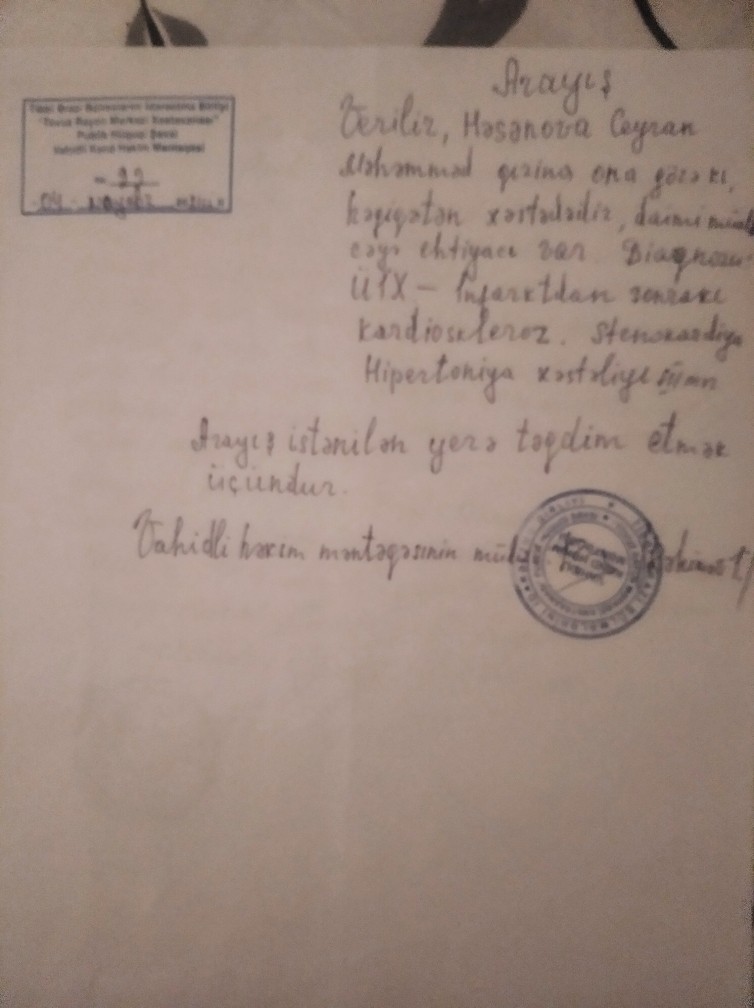 Tibbi Ərazi Bölmələrini İdarəetmə Birliyi
"Tovuz Rayon Mərkəzi Xəstəxanası"
Publik Hüquqi Şəxsi
Vahidli Kənd Həkim Məntəqəsi
Arayış
Verilir, Həsənova Ceyran
Məhəmməd qızına ona görəki,
həqiqətən xəstədədir, daimi müali
cəyə ehtiyacı var. Diaqnozu
ÜİX - İnfarktdan sonrakı
kardioskleroz. Stenokardiya
Hipertoniya xəstəliyi
Arayış istənilən yerə təqdim etmək
üçündur.
Vahidli həkim məntəqəsinin müd